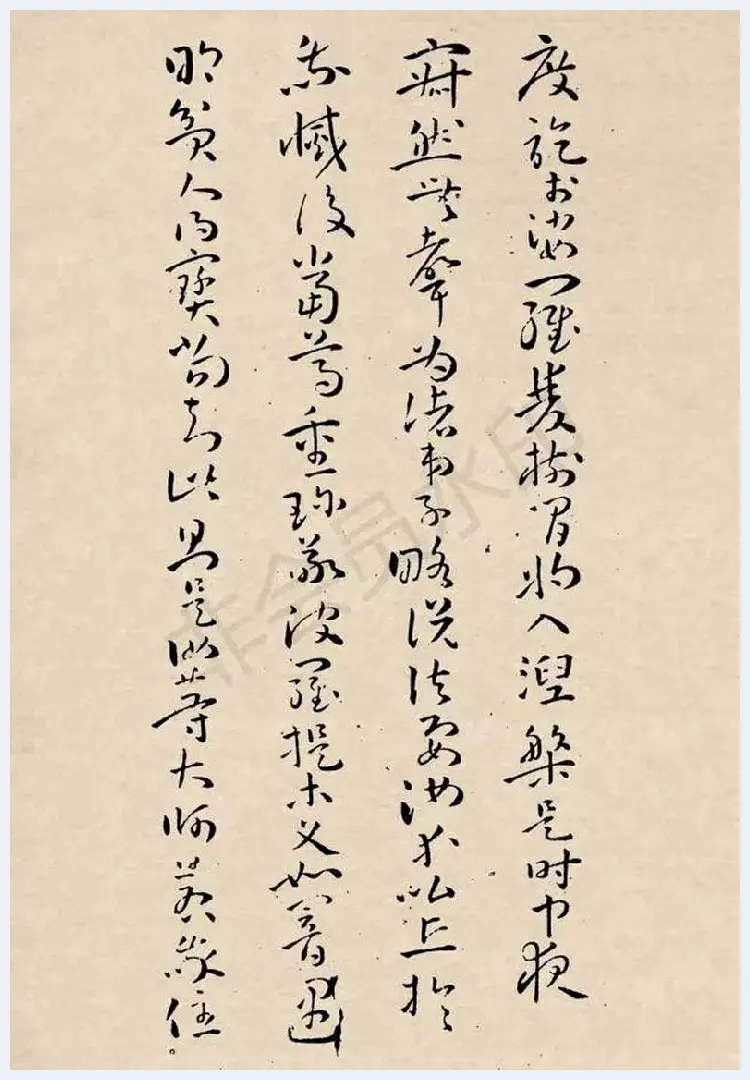 度訖於娑羅雙樹間將入涅槃是時中夜
寂然無聲為諸弟子略說法要汝等比丘於
我滅後當尊重珍敬波羅提木叉如闇遇
明貧人得寶當知此則是汝等大師若我住
非会员水印